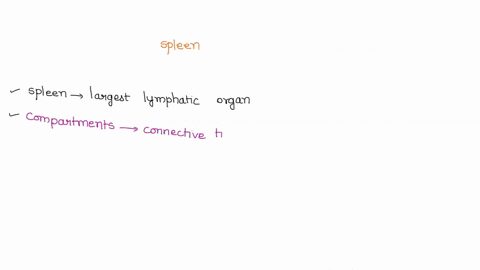 spleen
✓ spleen → largest lymphatic organ
✓ compartments → connective t